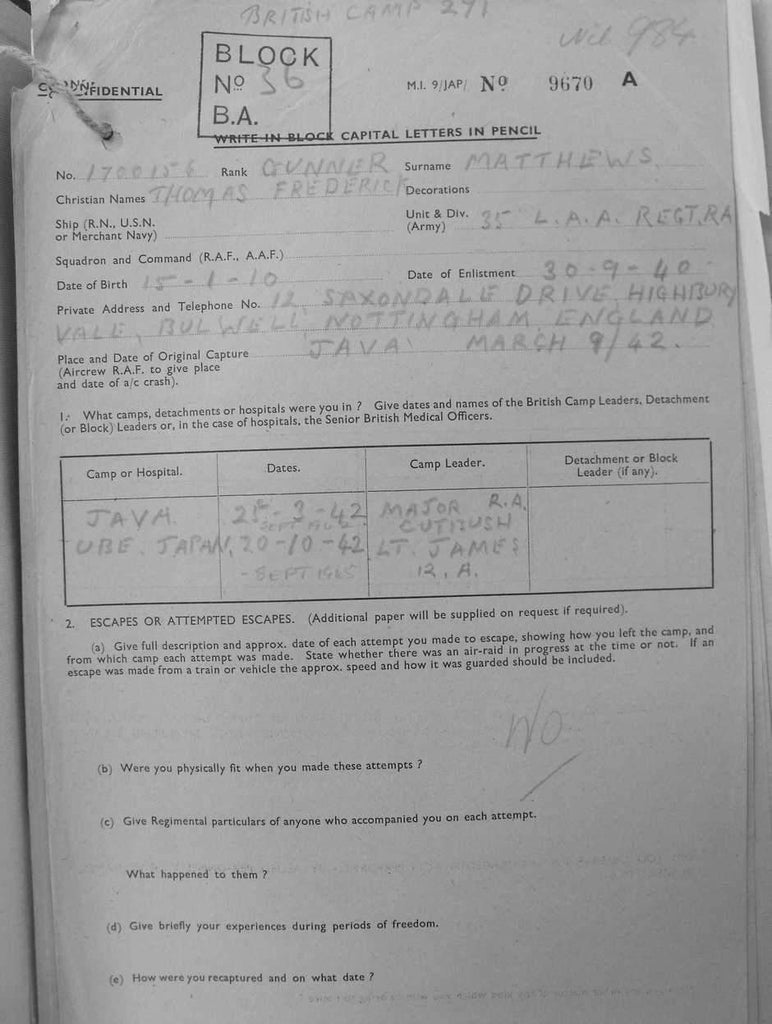 BRITISH CAMP 291
Nil 984
BLOCK
Nº 36
B.A.
CONFIDENTIAL
M.I. 9/JAP/ Nº 9670 A
WRITE IN BLOCK CAPITAL LETTERS IN PENCIL
No. 1700156 Rank GUNNER Surname MATTHEWS
Christian Names THOMAS FREDERICK Decorations
Ship (R.N., U.S.N.
or Merchant Navy)
Unit & Div. 35 L.A.A. REGT, RA
(Army)
Squadron and Command (R.A.F., A.A.F.)
Date of Birth 15-1-10 Date of Enlistment 30-9-40
Private Address and Telephone No. 12, SAXONDALE DRIVE, HIGHBURY
VALE, BULWELL NOTTINGHAM ENGLAND
Place and Date of Original Capture JAVA MARCH 9/42.
(Aircrew R.A.F. to give place
and date of a/c crash).
1. What camps, detachments or hospitals were you in ? Give dates and names of the British Camp Leaders, Detachment
(or Block) Leaders or, in the case of hospitals, the Senior British Medical Officers.
Camp or Hospital. Dates. Camp Leader. Detachment or Block
Leader (if any).
JAVA. 25-3-42 MAJOR R.A.
SEPT CUTBUSH
UBE. JAPAN, 20-10-42 LT. JAMES
- SEPT 1945
2. ESCAPES OR ATTEMPTED ESCAPES. (Additional paper will be supplied on request if required).
(a) Give full description and approx. date of each attempt you made to escape, showing how you left the camp, and
from which camp each attempt was made. State whether there was an air-raid in progress at the time or not. If an
escape was made from a train or vehicle the approx. speed and how it was guarded should be included.
NO
(b) Were you physically fit when you made these attempts ?
(c) Give Regimental particulars of anyone who accompanied you on each attempt.
What happened to them ?
(d) Give briefly your experiences during periods of freedom.
(e) How were you recaptured and on what date ?